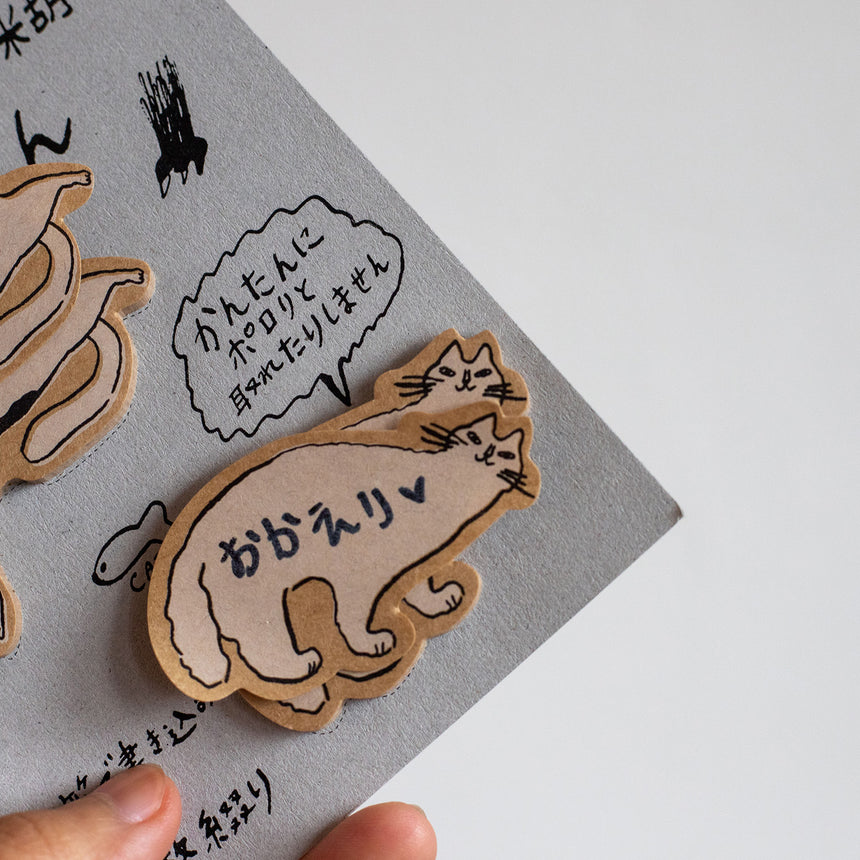 米胡
ん
かんたんに
ポロリと
取れたりしません
おかえり♥
CA
で書き込め
綴り